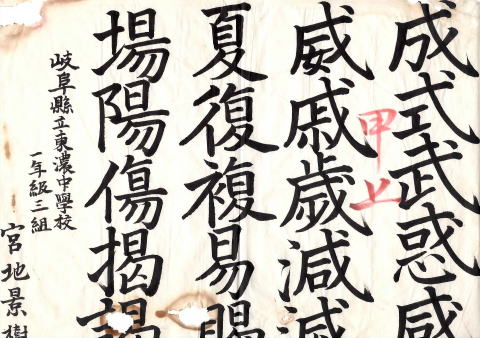 成式武惑感
威戚歳減滅
夏復複易賜
場陽傷揭謁
甲上
岐阜縣立東濃中學校
一年級三組
宮地景樹